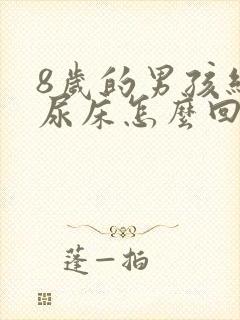 8歲的男孩經
尿床怎麼回
蓬一拍